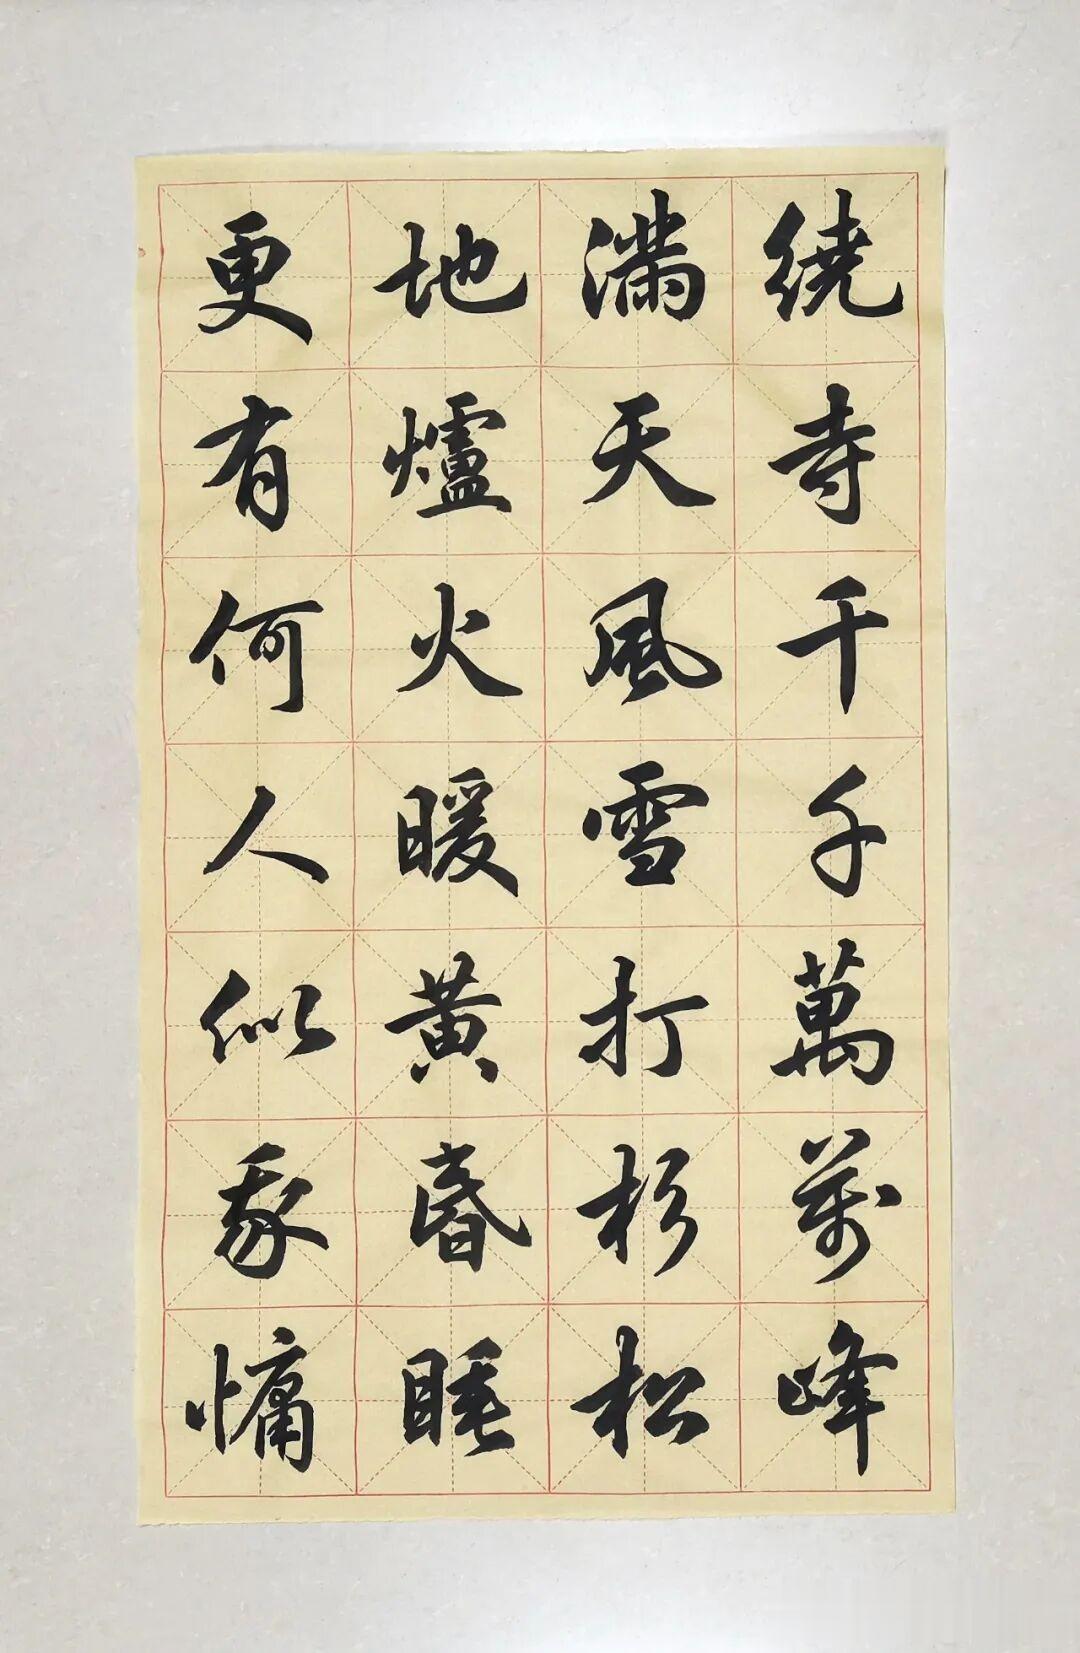 繞寺千千萬萬峰
滿天風雪打杉松
地爐火暖黃昏睡
更有何人似我慵